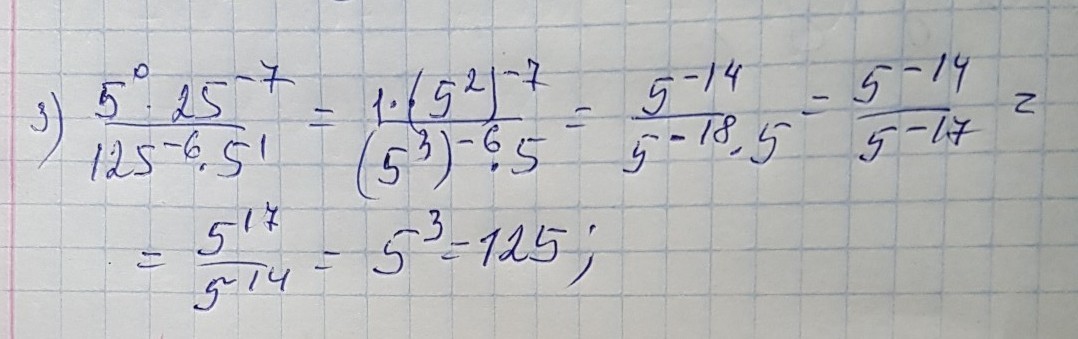 3) \frac{5^0 \cdot 25^{-7}}{125^{-6} \cdot 5^1} = \frac{1 \cdot (5^2)^{-7}}{(5^3)^{-6} \cdot 5} = \frac{5^{-14}}{5^{-18} \cdot 5} = \frac{5^{-14}}{5^{-17}} =
= \frac{5^{17}}{5^{14}} = 5^3 = 125;